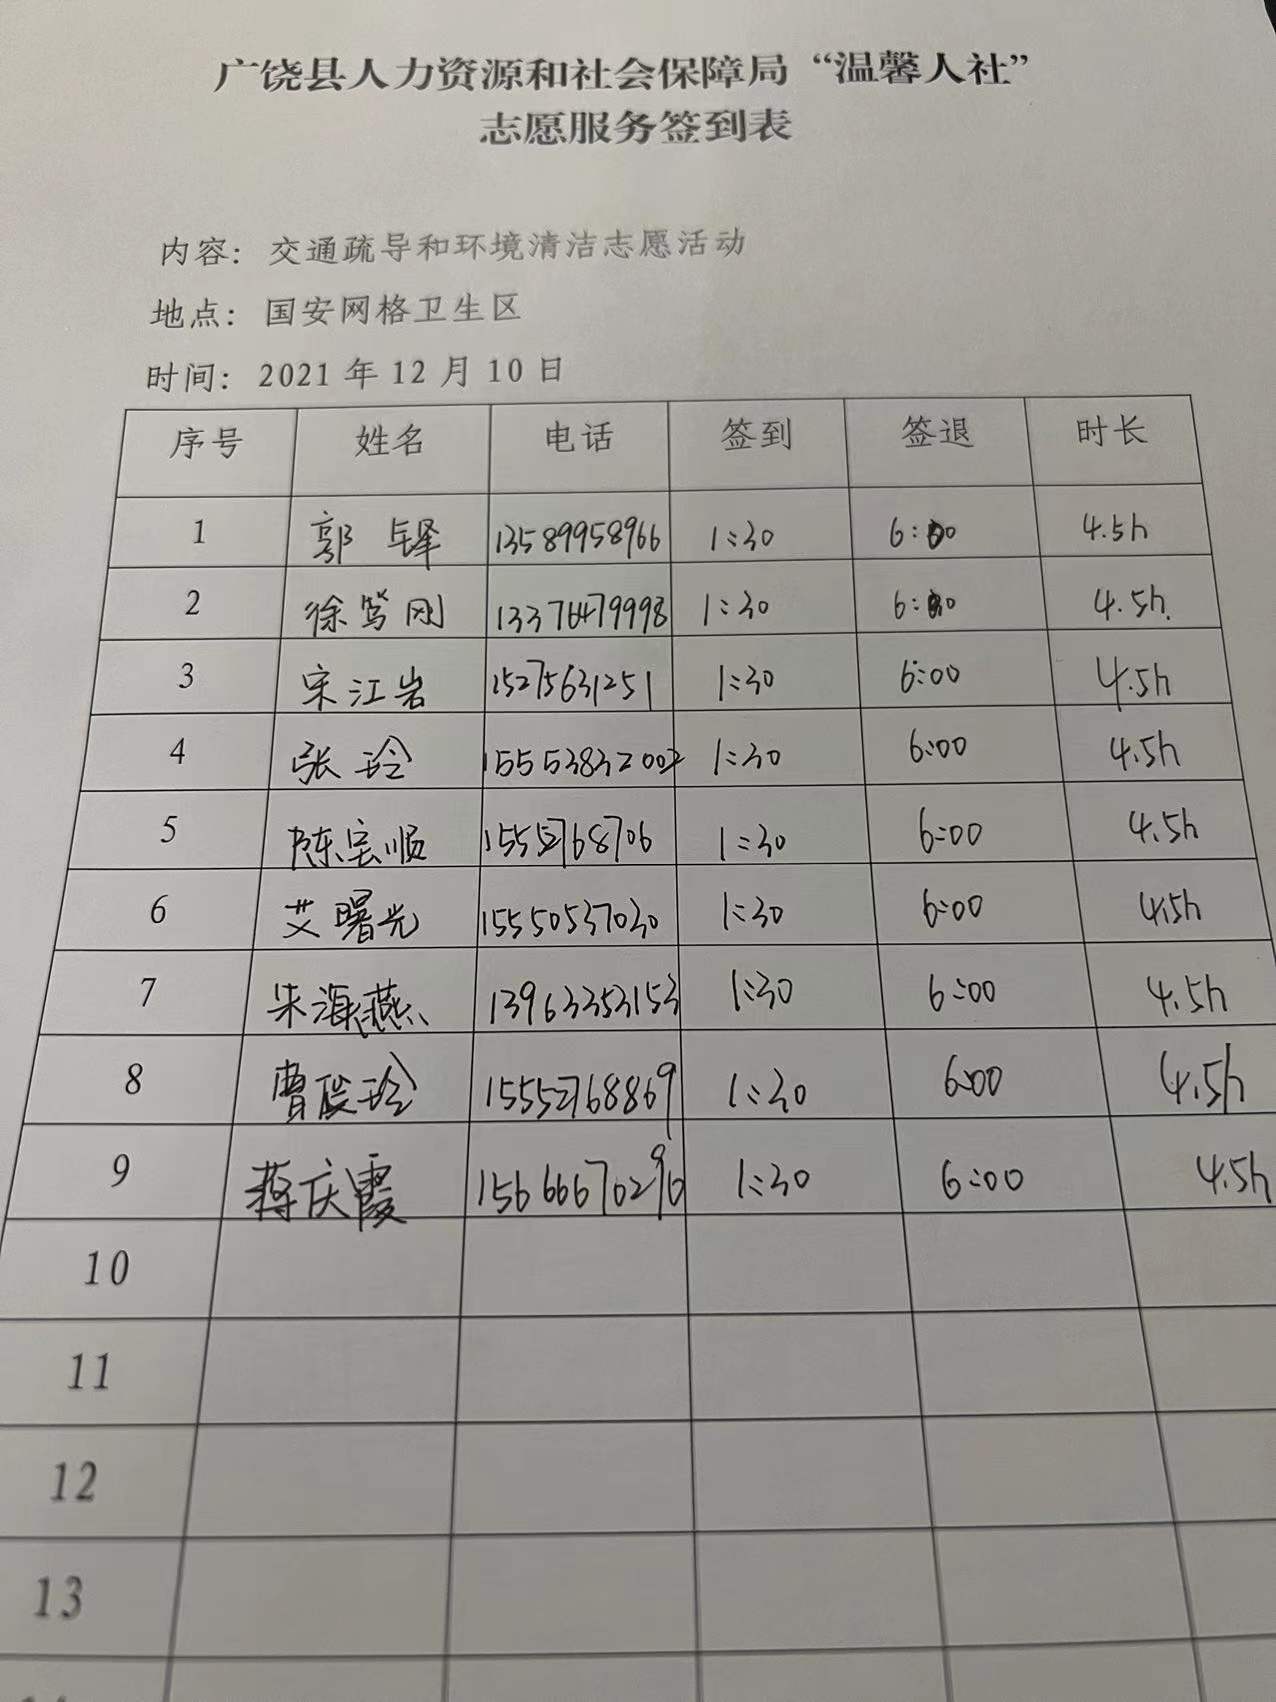 广饶县人力资源和社会保障局“温馨人社”
志愿服务签到表
内容：交通疏导和环境清洁志愿活动
地点：国安网格卫生区
时间：2021年12月10日
序号 姓名 电话 签到 签退 时长
1 郭铎 13589958966 1:30 6:00 4.5h
2 徐笃刚 13376479998 1:30 6:00 4.5h.
3 宋江岩 15275631251 1:30 6:00 4.5h
4 张玲 15553832002 1:30 6:00 4.5h
5 陈宝顺 15552768706 1:30 6:00 4.5h
6 艾曙光 15550537030 1:30 6:00 4.5h
7 朱海燕 13963353153 1:30 6:00 4.5h
8 曹俊玲 15552768869 1:30 6:00 4.5h
9 蒋庆霞 15666670296 1:30 6:00 4.5h
10
11
12
13